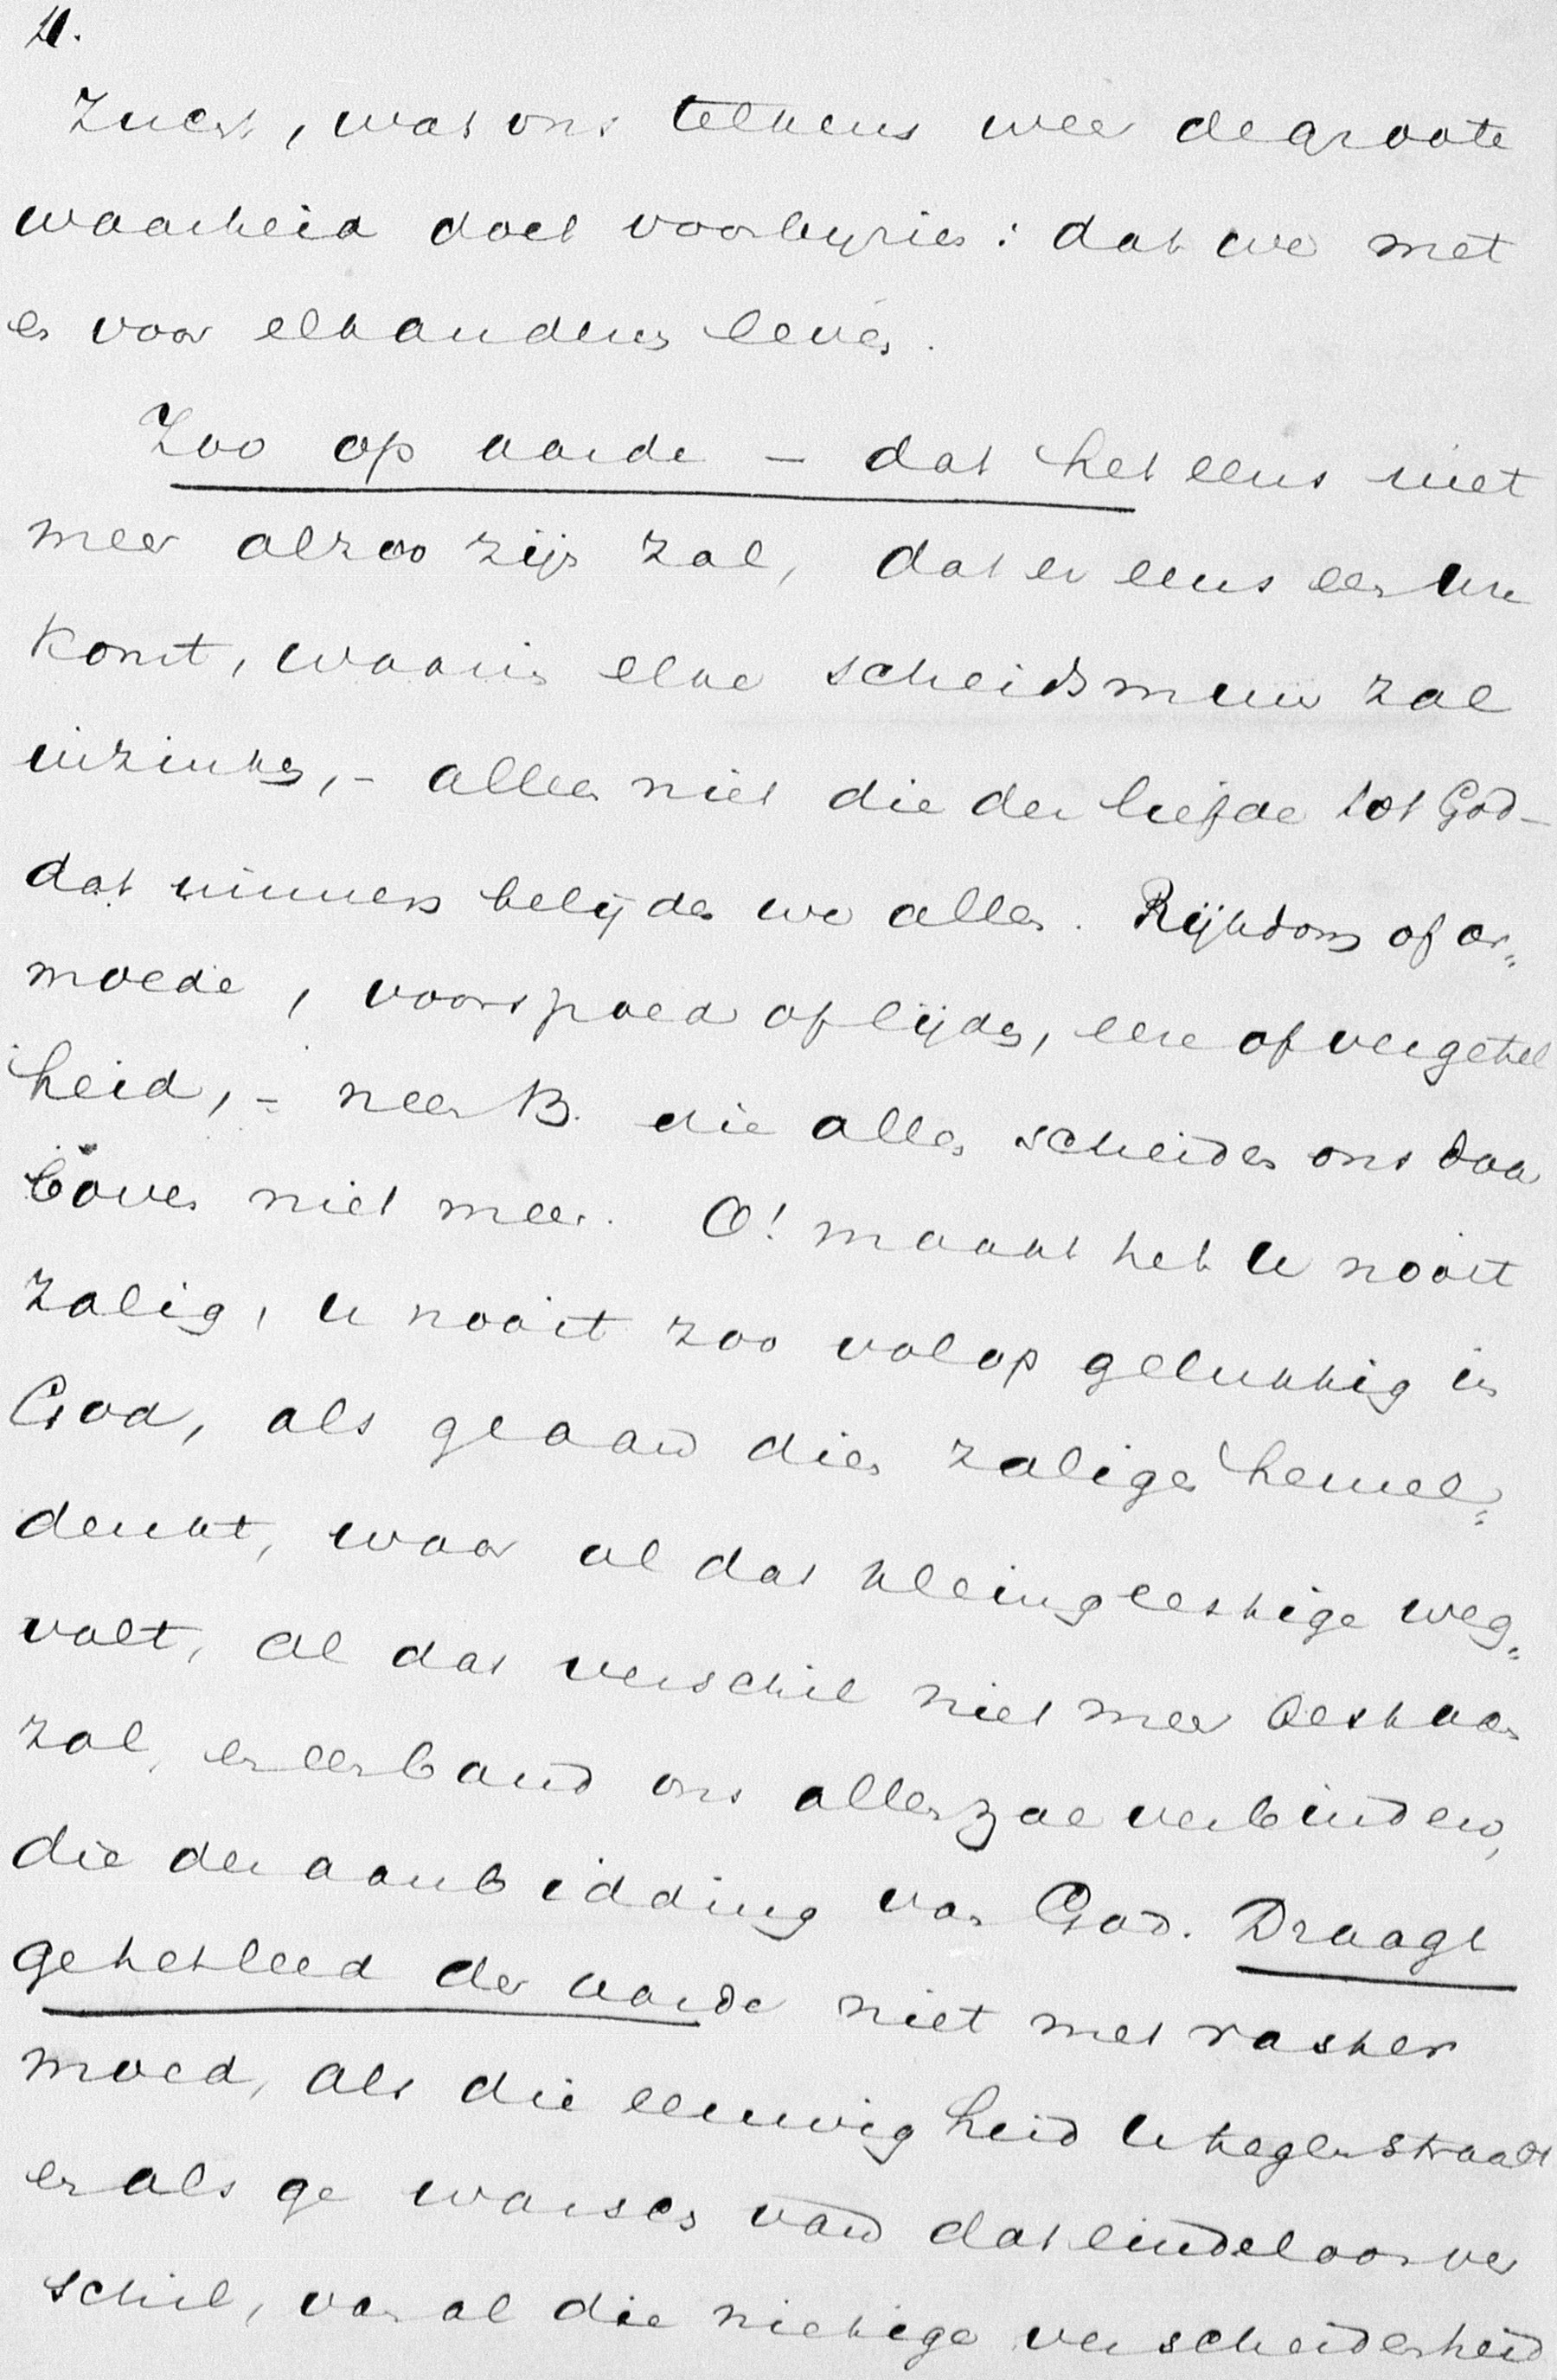 4.
zucht, wat ons telkens weer de groote
waarheid doet voorbijzien: dat we met
en voor elkanderen leven.
Zoo op aarde – dat het eens niet
meer alzoo zijn zal, dat er eens een ure
komt, waarin elke scheidsmuur zal
inzinken, – alleen niet die der liefde tot God –
dat immers belijden we allen. Rijkdom of ar„
moede, voorspoed of lijden, eere of vergetel
heid, – neen B. die alle scheiden ons daar
boven niet meer. O! maakt het U nooit
zalig, U nooit zoo volop gelukkig in
God, als ge aan dien zaligen hemel„
denkt, waar al dat kleingeestige weg„
valt, al dat verschil niet meer bestaan
zal, en een band ons allen zal verbinden,
die der aanbidding van God. Draagt
ge het leed der aarde niet met rasker
moed, als die eeuwigheid U tegenstraalt
en als ge walsen van dat eindeloos ver
schil, van al die nietige verscheidenheid